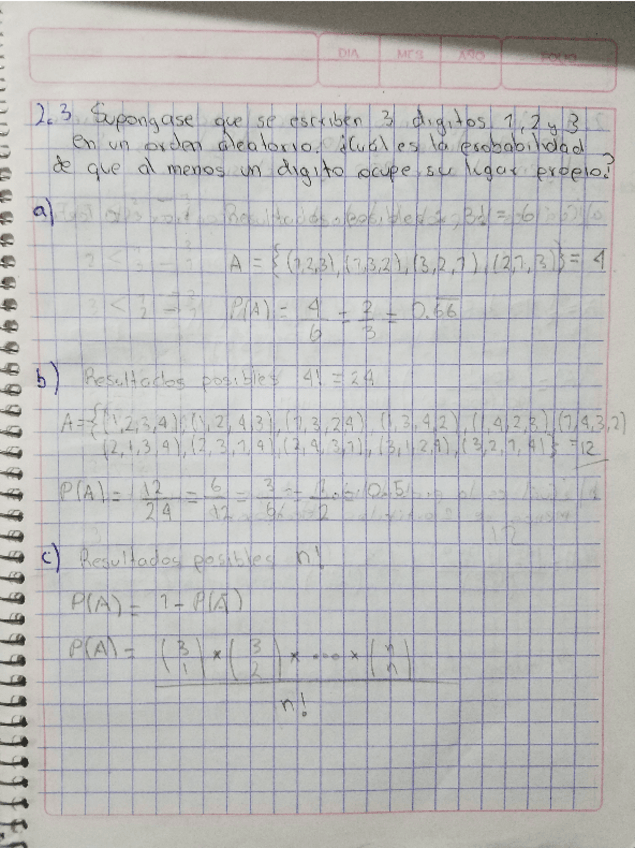 DIA MES AÑO FOLIO
2.3 Supongase que se escriben 3 digitos 1, 2 y 3
en un orden aleatorio. ¿Cual es la probabilidad
de que al menos un digito ocupe su lugar propio?
a) Resultados posibles 3! = 6
A = {(1,2,3), (1,3,2), (3,2,1), (2,1,3)} = 4
P(A) = 4/6 = 2/3 = 0.66
b) Resultados posibles 4! = 24
A = {(1,2,3,4), (1,2,4,3), (1,3,2,4), (1,3,4,2), (1,4,2,3), (1,4,3,2)
(2,1,3,4), (2,3,1,4), (2,4,3,1), (3,1,2,4), (3,2,1,4)} = 12
P(A) = 12/24 = 6/12 = 3/6 = 1/2 = 0.5
c) Resultados posibles n!
P(A) = 1 - P(Ā)
P(A) = (3 1) * (3 2) * ... * (n n)
n!